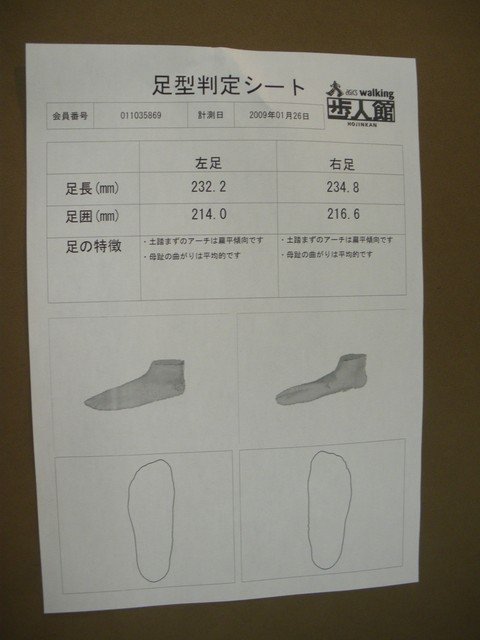 足型判定シート
asics walking
歩人館
HOJINKAN
会員番号 011035869 計測日 2009年01月26日
左足 右足
足長(mm) 232.2 234.8
足囲(mm) 214.0 216.6
足の特徴 ・土踏まずのアーチは扁平傾向です ・土踏まずのアーチは扁平傾向です
・母趾の曲がりは平均的です ・母趾の曲がりは平均的です